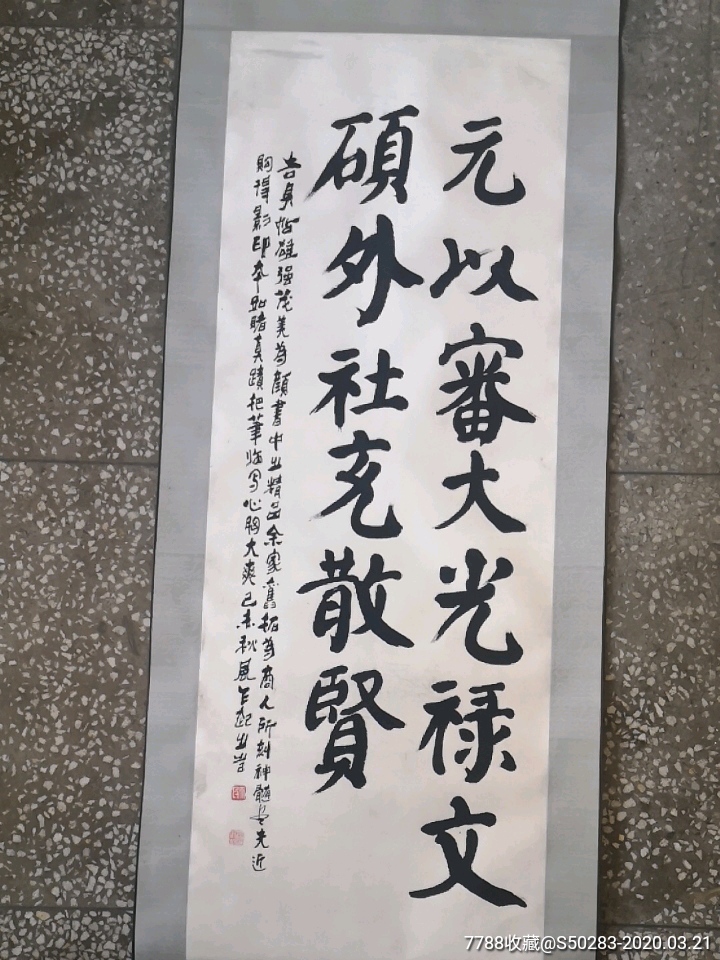 元以審大光禄文
碩外社充散賢
告身哲雄强茂美為顏書中之精品余家舊拓為商人所刻神髓 先近
購得影印本如睹真蹟把筆临写心胸大爽己未秋風乍起
7788收藏@S50283-2020.03.21